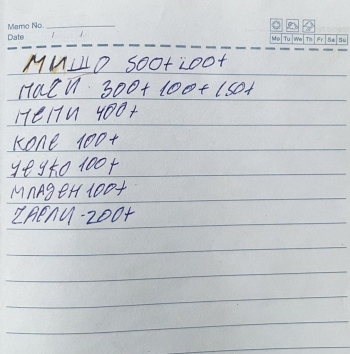 Memo No.
Date / /
Mo Tu We Th Fr Sa Su
МИШО 500+200+
МАСИ 300+100+150+
МЕМИ 400+
КОЛЕ 100+
100+
МЛАДЕН 100+
ЧАРЛИ-200+